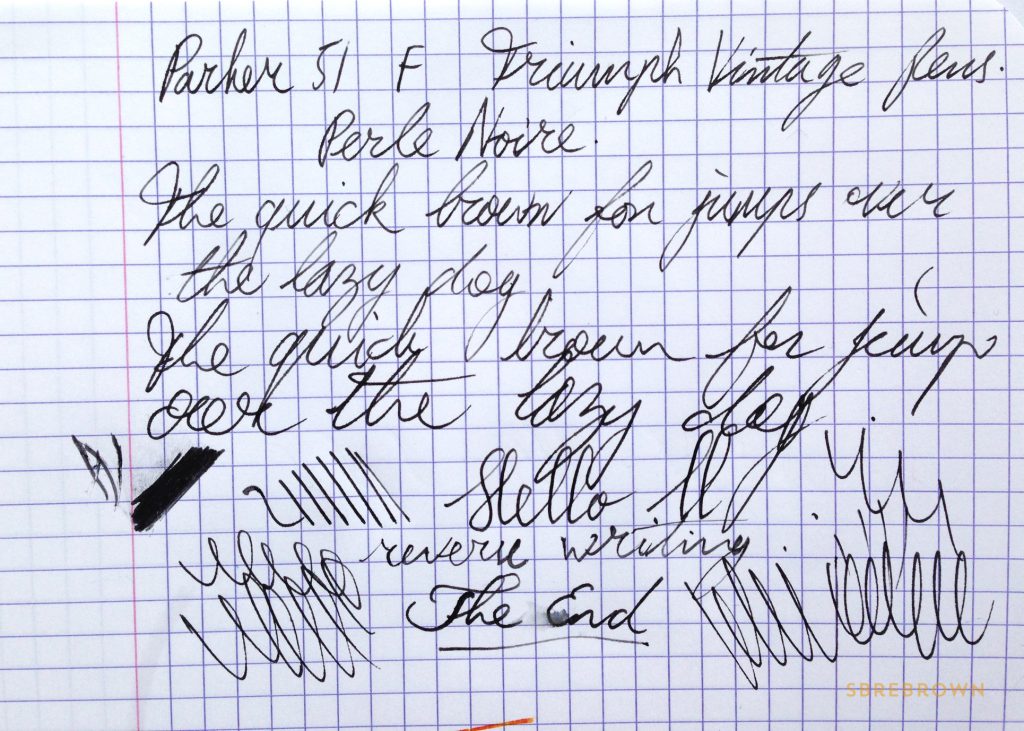 Parker 51 F Triumph Vintage Pens.
Perle Noire.
The quick brown fox jumps over
the lazy dog
The quick brown fox jumps
over the lazy dog.
Hello
reverse writing.
The End
SBREBROWN